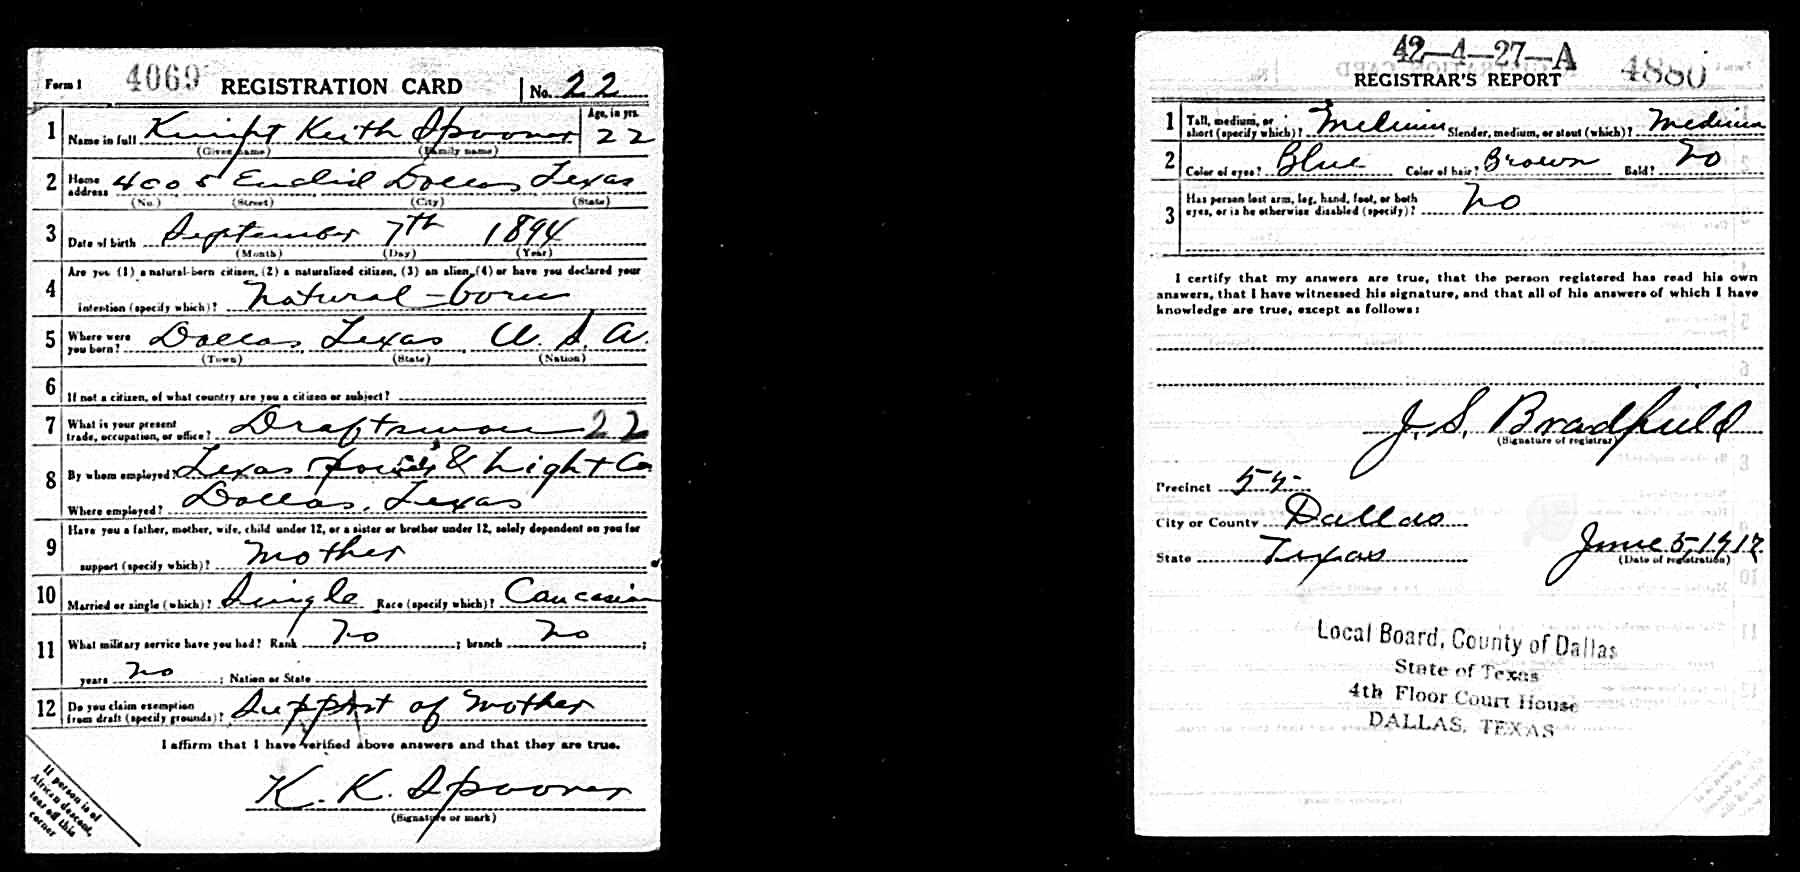 Form 1 4069 REGISTRATION CARD No. 22
1 Name in full Knight Keith Spooner Age, in yrs. 22
(Given name) (Family name)
2 Home address 4005 Euclid Dallas Texas
(No.) (Street) (City) (State)
3 Date of birth September 7th 1894
(Month) (Day) (Year)
4 Are you (1) a natural-born citizen, (2) a naturalized citizen, (3) an alien, (4) or have you declared your
intention (specify which)? Natural-born
5 Where were you born? Dallas, Texas, U.S.A.
(Town) (State) (Nation)
6 If not a citizen, of what country are you a citizen or subject?
7 What is your present trade, occupation, or office? Draftsman 22
8 By whom employed? Texas Power & Light Co
Where employed? Dallas, Texas
9 Have you a father, mother, wife, child under 12, or a sister or brother under 12, solely dependent on you for
support (specify which)? Mother
10 Married or single (which)? Single Race (specify which)? Caucasian
11 What military service have you had? Rank No ; branch No ;
years No ; Nation or State
12 Do you claim exemption from draft (specify grounds)? Support of Mother
I affirm that I have verified above answers and that they are true.
K. K. Spooner
(Signature or mark)
If person is of
African descent,
tear off this
corner
42-4-27-A
REGISTRAR'S REPORT 4880
1 Tall, medium, or short (specify which)? Medium Slender, medium, or stout (which)? Medium
2 Color of eyes? Blue Color of hair? Brown Bald? No
3 Has person lost arm, leg, hand, foot, or both
eyes, or is he otherwise disabled (specify)? No
I certify that my answers are true, that the person registered has read his own
answers, that I have witnessed his signature, and that all of his answers of which I have
knowledge are true, except as follows:
J. S. Bradfield
(Signature of registrar)
Precinct 55
City or County Dallas
State Texas June 5, 1917
(Date of registration)
Local Board, County of Dallas
State of Texas
4th Floor Court House
DALLAS, TEXAS